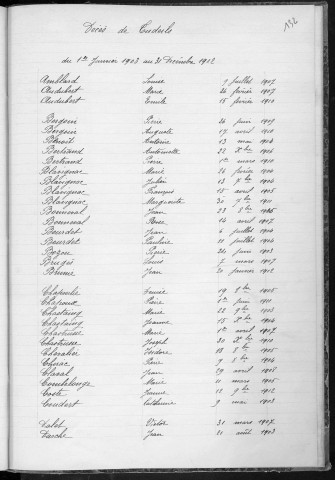 132
Décès de
du 1er Janvier 1903 au 31 Décembre 1912
Amblard Louise 9 juillet 1907
Audubert Marie 26 février 1907
Audubert Emile 15 février 1910
Bargoin Pierre 26 juin 1909
Bargoin Auguste 17 avril 1910
Benoit Antoine 13 mai 1904
Bertrand Antoinette 22 Xbre 1906
Bertrand Pierre 1er mars 1910
Blavignac Marie 26 février 1910
Blavignac Julien 13 Xbre 1904
Blavignac François 15 avril 1905
Blavignac Marguerite 30 9bre 1911
Bonneval Jean 23 8bre 1905
Bonneval Rose 14 avril 1907
Bourdet Jean 6 juillet 1904
Bourdet Pauline 11 juillet 1906
Pierre 24 juin 1903
Louis 7 mars 1907
Jean 20 février 1912
Chapoule 19 8bre 1905
Chapoux Pierre 1er juin 1911
Chastaing Marie 22 9bre 1903
Chastaing Jeanne 17 Xbre 1904
Marie 1er avril 1907
Joseph 30 Xbre 1910
Chevalier Isidore 13 8bre 1905
Pierre 9 8bre 1904
Claval Jean 29 avril 1908
Combelonge Marie 11 mars 1905
Coste Jeanne 13 9bre 1912
Coudert Catherine 9 mai 1903
Dalet Victor 31 mars 1907
Darche Jean 21 août 1903